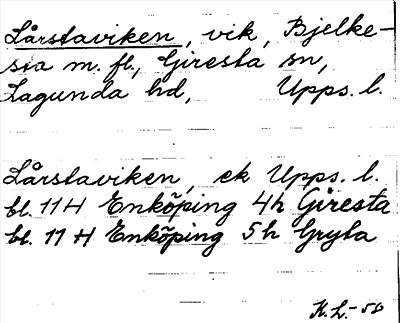 Lårstaviken, vik, Bjelke-
sta m. fl., Giresta sn,
Lagunda hd, Upps. l.
Lårstaviken, ek Upps. l.
bl. 11 H Enköping 4h Giresta
bl. 11 H Enköping 5h Gryta
K. L. - 58